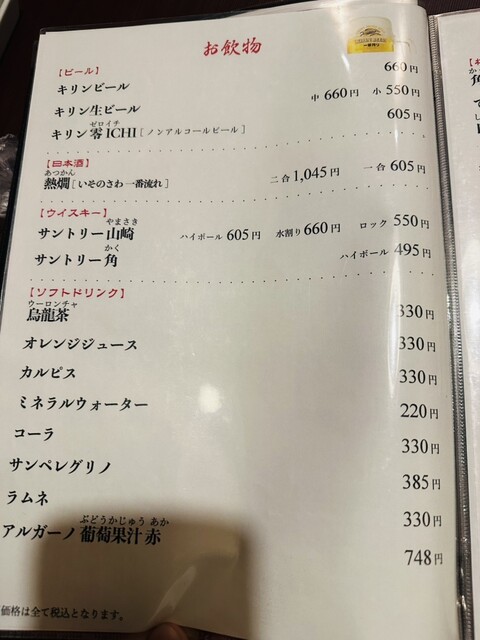 お飲物
【ビール】
キリンビール 660円
キリン生ビール 中 660円 小 550円
ゼロイチ
キリン 零ICHI［ノンアルコールビール］ 605円
【日本酒】
あつかん
熱燗［いそのさわ 一番流れ］ 二合 1,045円 一合 605円
【ウイスキー】
やまざき
サントリー山崎 ハイボール 605円 水割り 660円 ロック 550円
かく
サントリー角 ハイボール 495円
【ソフトドリンク】
ウーロンチャ
烏龍茶 330円
オレンジジュース 330円
カルピス 330円
ミネラルウォーター 220円
コーラ 330円
サンペレグリノ 385円
ラムネ 330円
ぶどうかじゅう あか
アルガーノ 葡萄果汁 赤 748円
価格は全て税込となります。